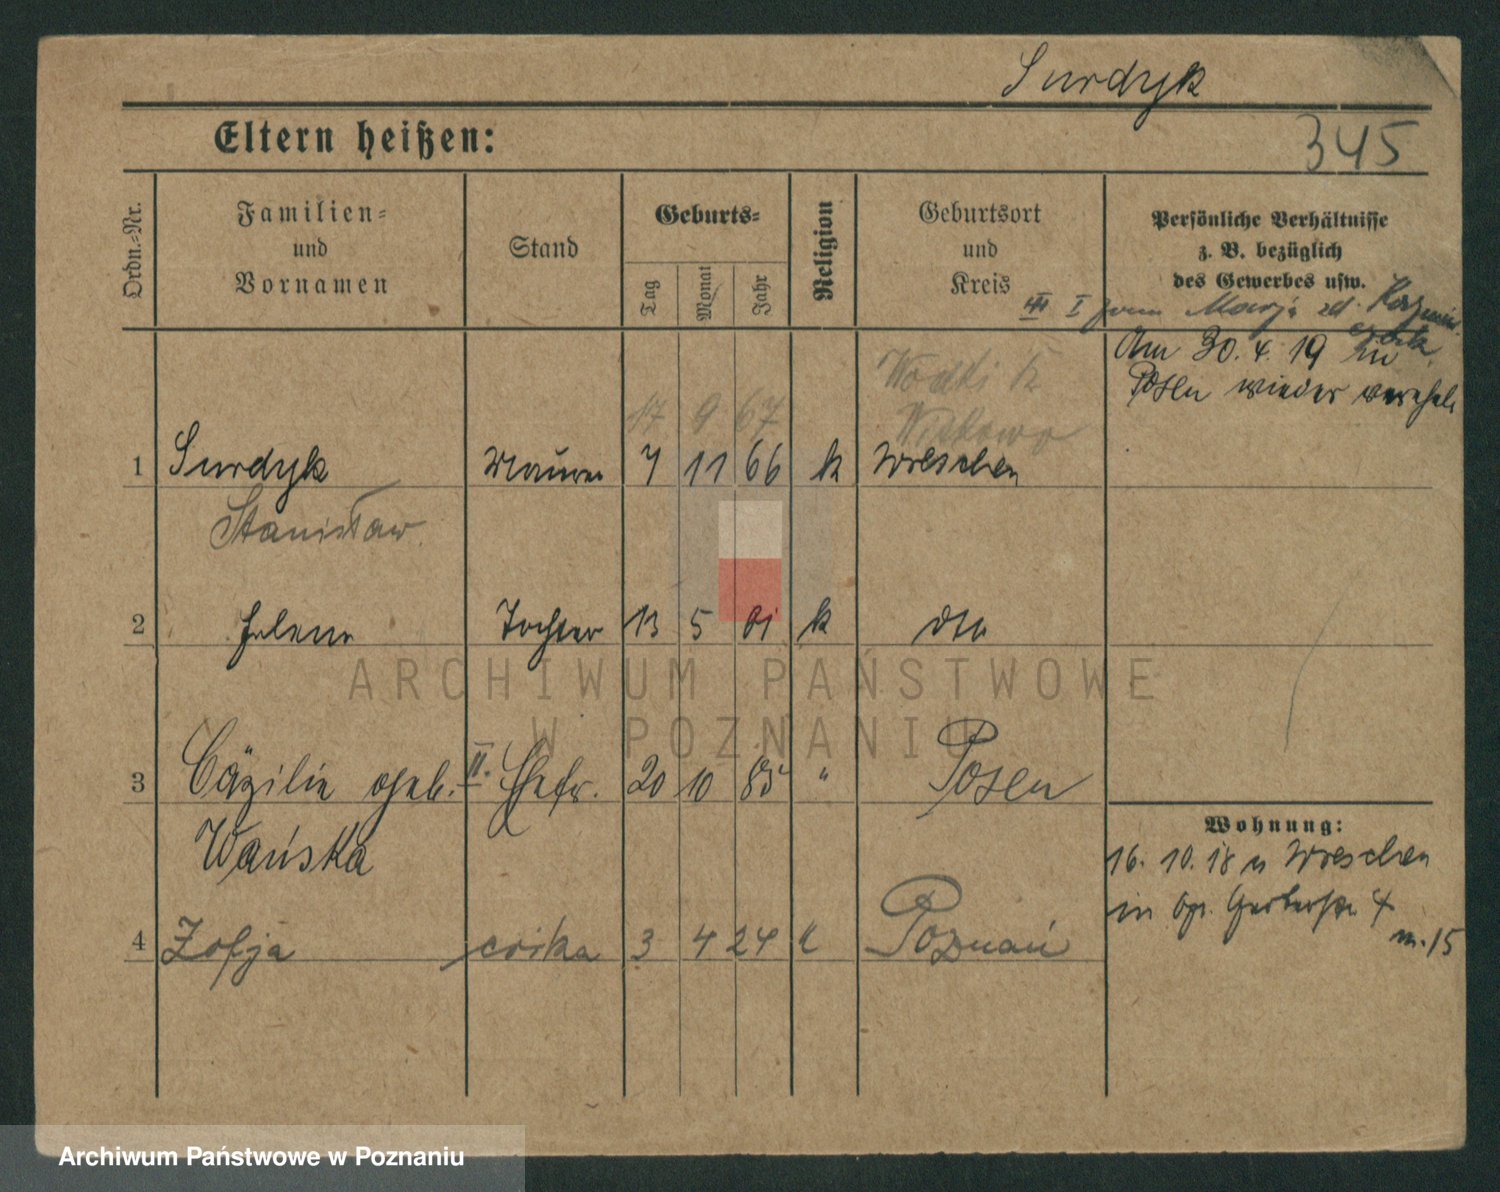 Surdyk
Eltern heißen:
345
Ordn.-Nr.
Familien-
und
Vornamen
Stand
Geburts-
Tag
Monat
Jahr
Religion
Geburtsort
und
Kreis
Persönliche Verhältnisse
z. B. bezüglich
des Gewerbes usw.
III I żona Marja zd. Kazmier
czak
Am 30. 4. 19 in
Posen wieder verehel.
17 9 67 Wodki k
Witkowo
1 Surdyk Maurer 7 11 66 k Wreschen
Stanisław
2 Helene Tochter 13 5 01 k dto
3 Cäzilie geb. II. Ehefr. 20 10 85 " Posen
Wańska
Wohnung:
16. 10. 18 v Wreschen
in Gerberstr. 4
m. 15
4 Zofja córka 3 4 24 k Poznań
ARCHIWUM PAŃSTWOWE
W POZNANIU
Archiwum Państwowe w Poznaniu